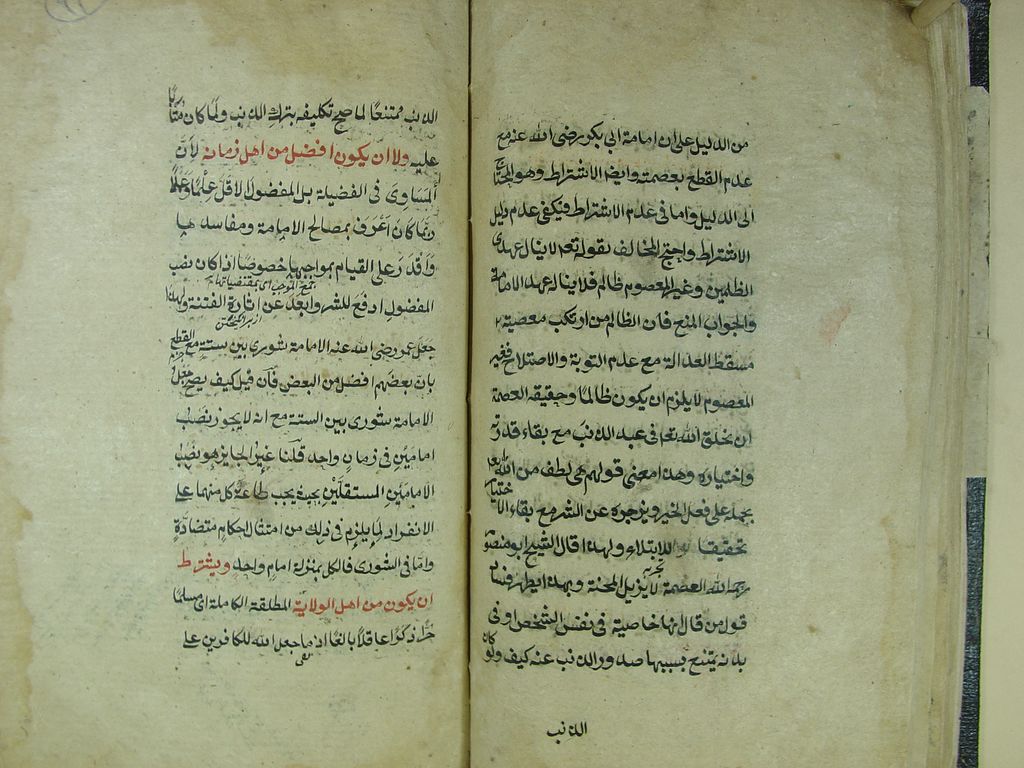 من الدليل على ان امامة ابى بكر رضى الله عنه مع
عدم القطع بعصمته وايضا الاشتراط وهو المحتاج
الى الدليل واما فى عدم الاشتراط فيكفى عدم دليل
الاشتراط واحتج المخالف بقوله تعم لا ينال عهدى
الظلمين وغير المعصوم ظالم فلا يناله عهد الامامة
والجواب المنع فان الظالم من ارتكب معصية
مسقطة للعدالة مع عدم التوبة والاصلاح فغير
المعصوم لا يلزم ان يكون ظالما وحقيقة العصمة
ان يخلق الله تعا فى عبد الذنب مع بقاء قدرته
واختياره وهذا معنى قولهم هى لطف من الله تعا
يحمله على فعل الخير ويزجره عن الشر مع بقاء الاختيار
تحقيقا للابتلاء ولهذا قال الشيخ ابو منصور
رحمه الله العصمة لا تزيل المحنة وبهذا يظهر فساد
قول من قال انها خاصية فى نفس الشخص او فى
بدنه يمتنع بسببها صدور الذنب عنه كيف ولو كان
الذنب
الذنب ممتنعًا لما صح تكليفه بترك الذنب ولما كان مثابًا
عليه ولا ان يكون افضل من اهل زمانه لان
المساوى فى الفضيلة بل المفضول الاقل علمًا وعملًا
ربما كان اعرف بمصالح الامامة ومفاسدها
واقدر على القيام بمواجبها خصوصًا اذا كان نصب
المفضول ادفع للشر وابعد عن اثارة الفتنة ولهذا
جعل عمر رضى الله عنه الامامة شورى بين ستة مع القطع
بان بعضهم افضل من البعض فان قيل كيف يصح جعل
الامامة شورى بين الستة مع انه لا يجوز نصب
امامين فى زمان واحد قلنا غير الجايز هو نصب
الامامين المستقلين بحيث يجب طاعة كل منهما على
الانفراد لما يلزم فى ذلك من امتثال احكام متضادة
واما فى الشورى فالكل بمنزلة امام واحد ويشترط
ان يكون من اهل الولاية المطلقة الكاملة اى مسلمًا
حرًا ذكرًا عاقلًا بالغًا اذ ما جعل الله للكافرين على